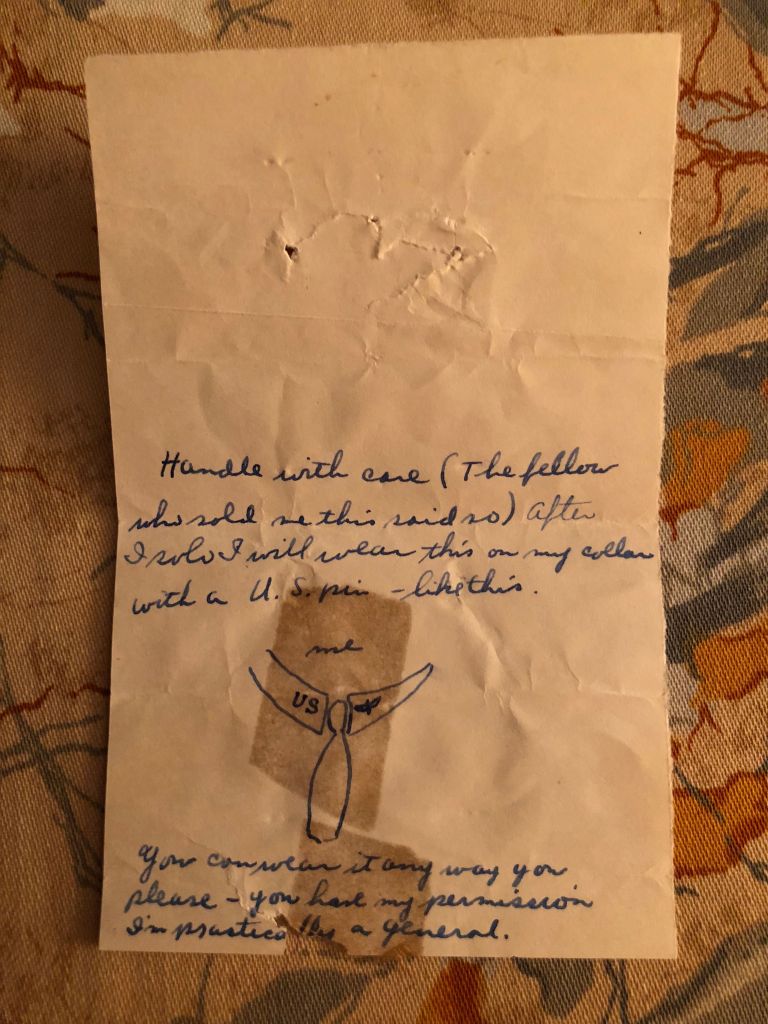 Handle with care (The fellow
who sold me this said so) After
I solo I will wear this on my collar
with a U.S. pin - like this.
me
US
You can wear it any way you
please - you have my permission
I'm practically a General.